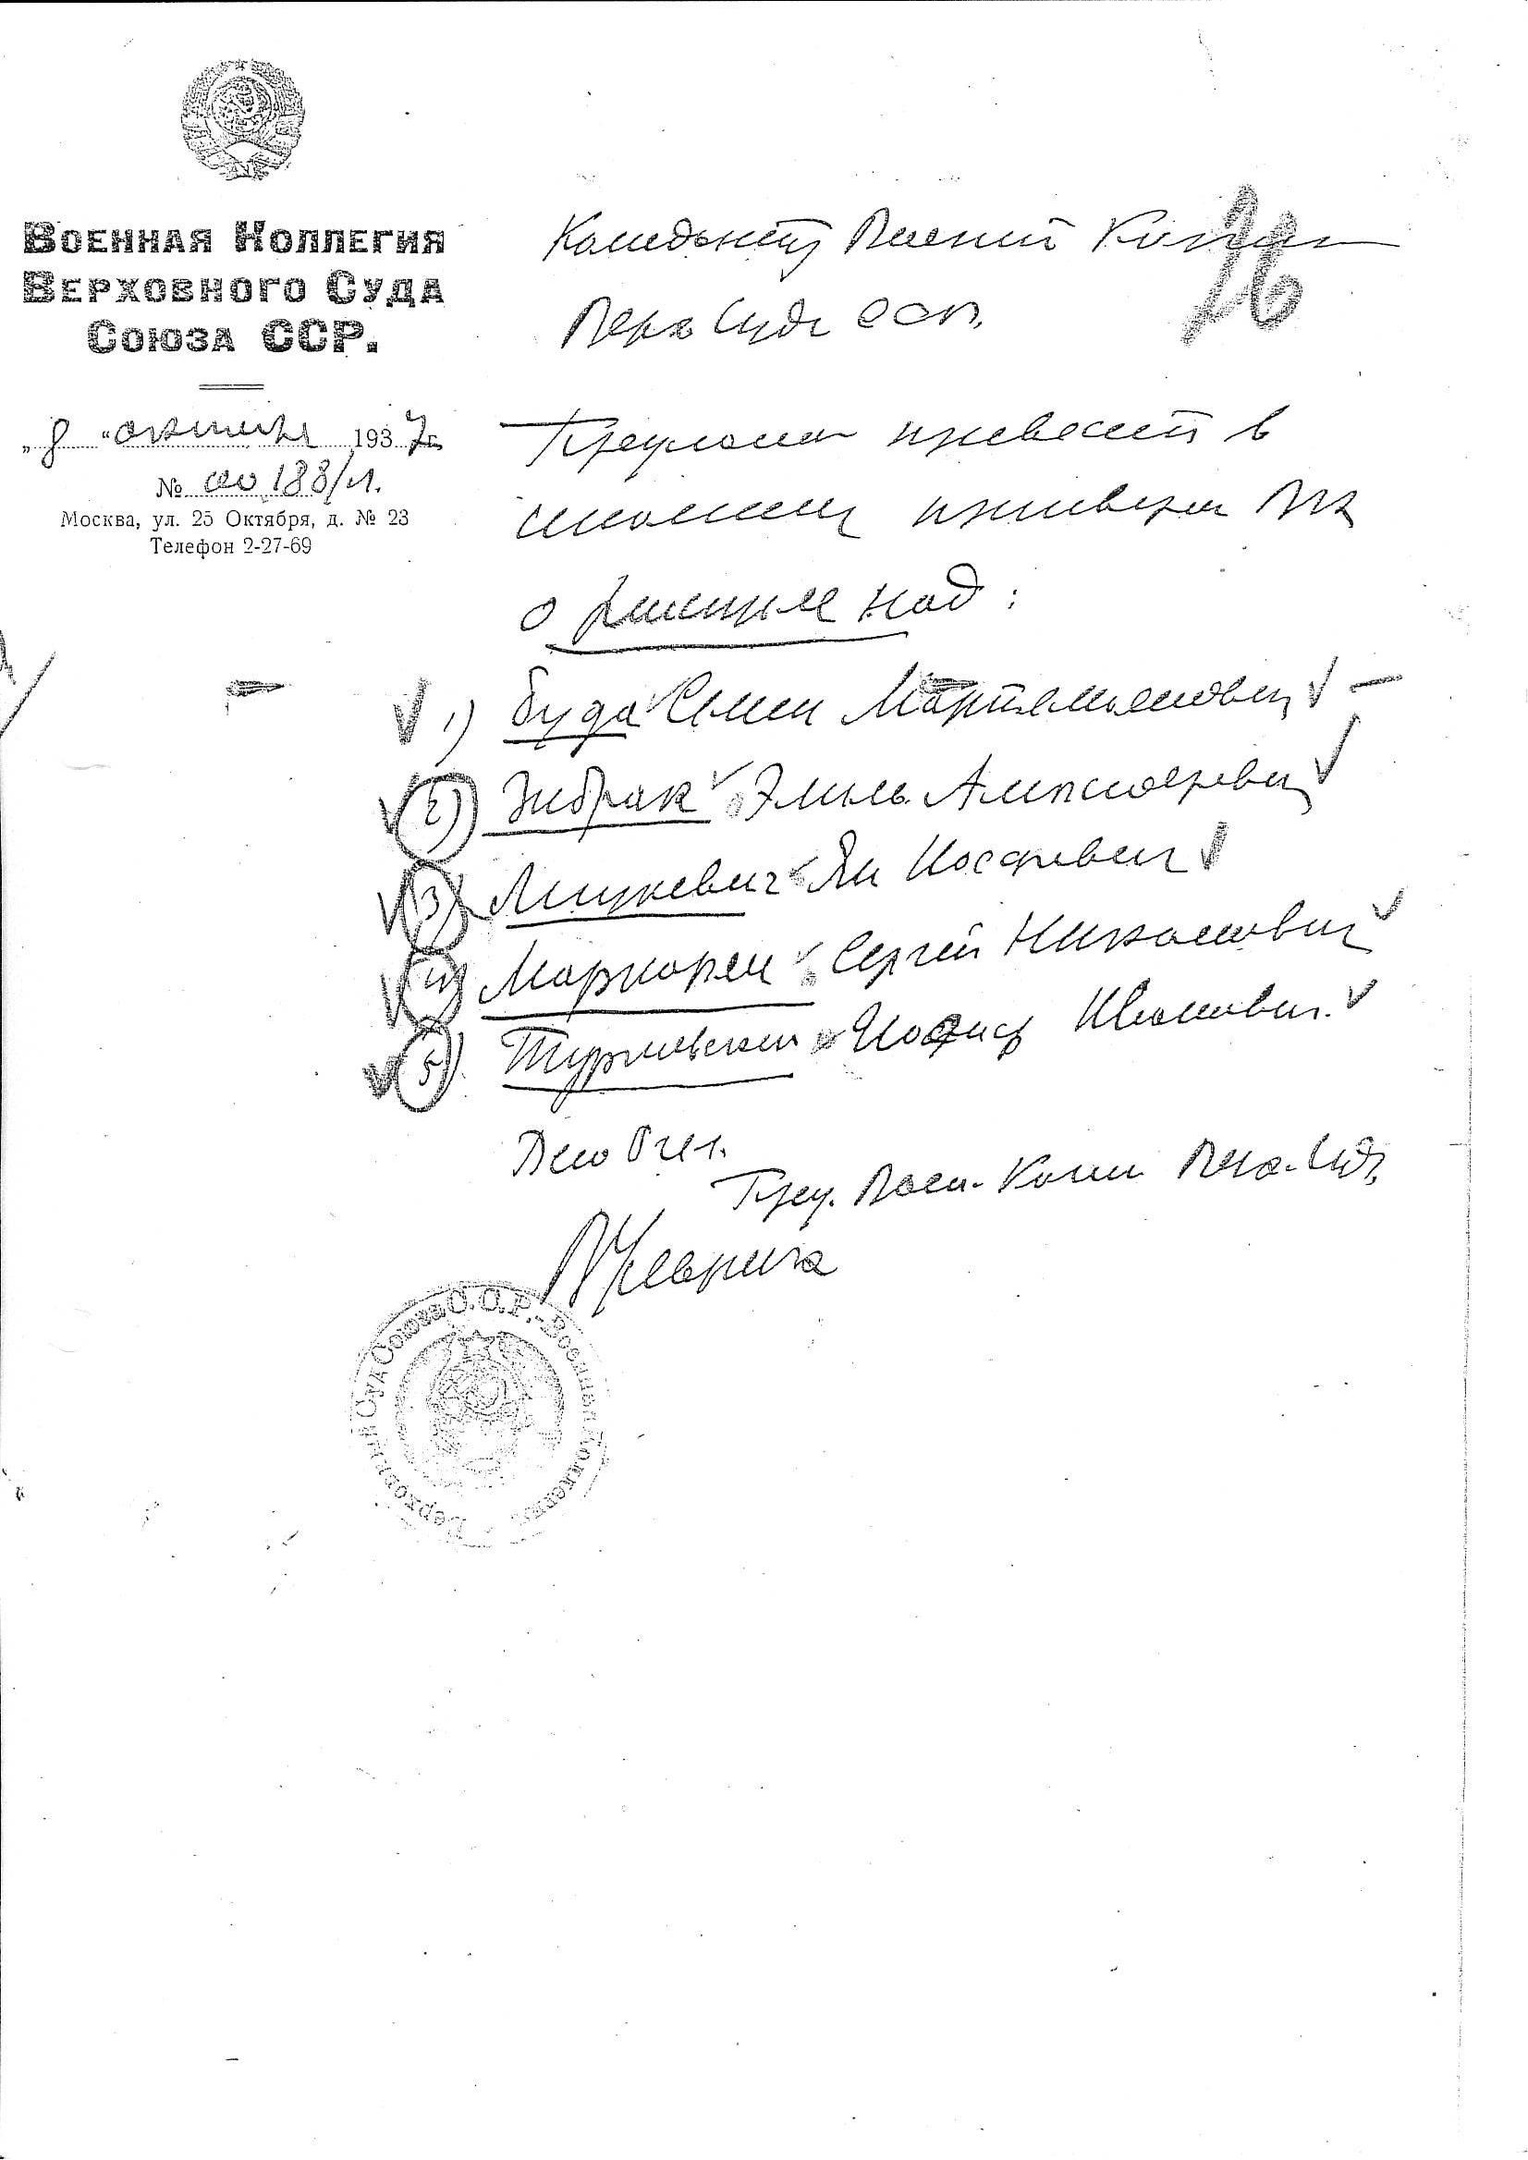 ВОЕННАЯ КОЛЛЕГИЯ
ВЕРХОВНОГО СУДА
СОЮЗА ССР.
„8“ октября 1937г.
№ 00188/л.
Москва, ул. 25 Октября, д. № 23
Телефон 2-27-69
26
Коменданту Военной Коллегии
Верх Суда ССР.
Предлагаю привести в
исполнение приговора ВК
о расстреле над:
1) Буда Семен Мартемьянович
2) Зибрак Эмиль
3) Мицкевич Ян Иосифович
4) Маркарян Сергей Николаевич
5) Иосиф Иванович.
Пред. Воен. Колл Верх. Суда
В Ульрих
Верховный Суд Союза С.С.Р. - Военная Коллегия